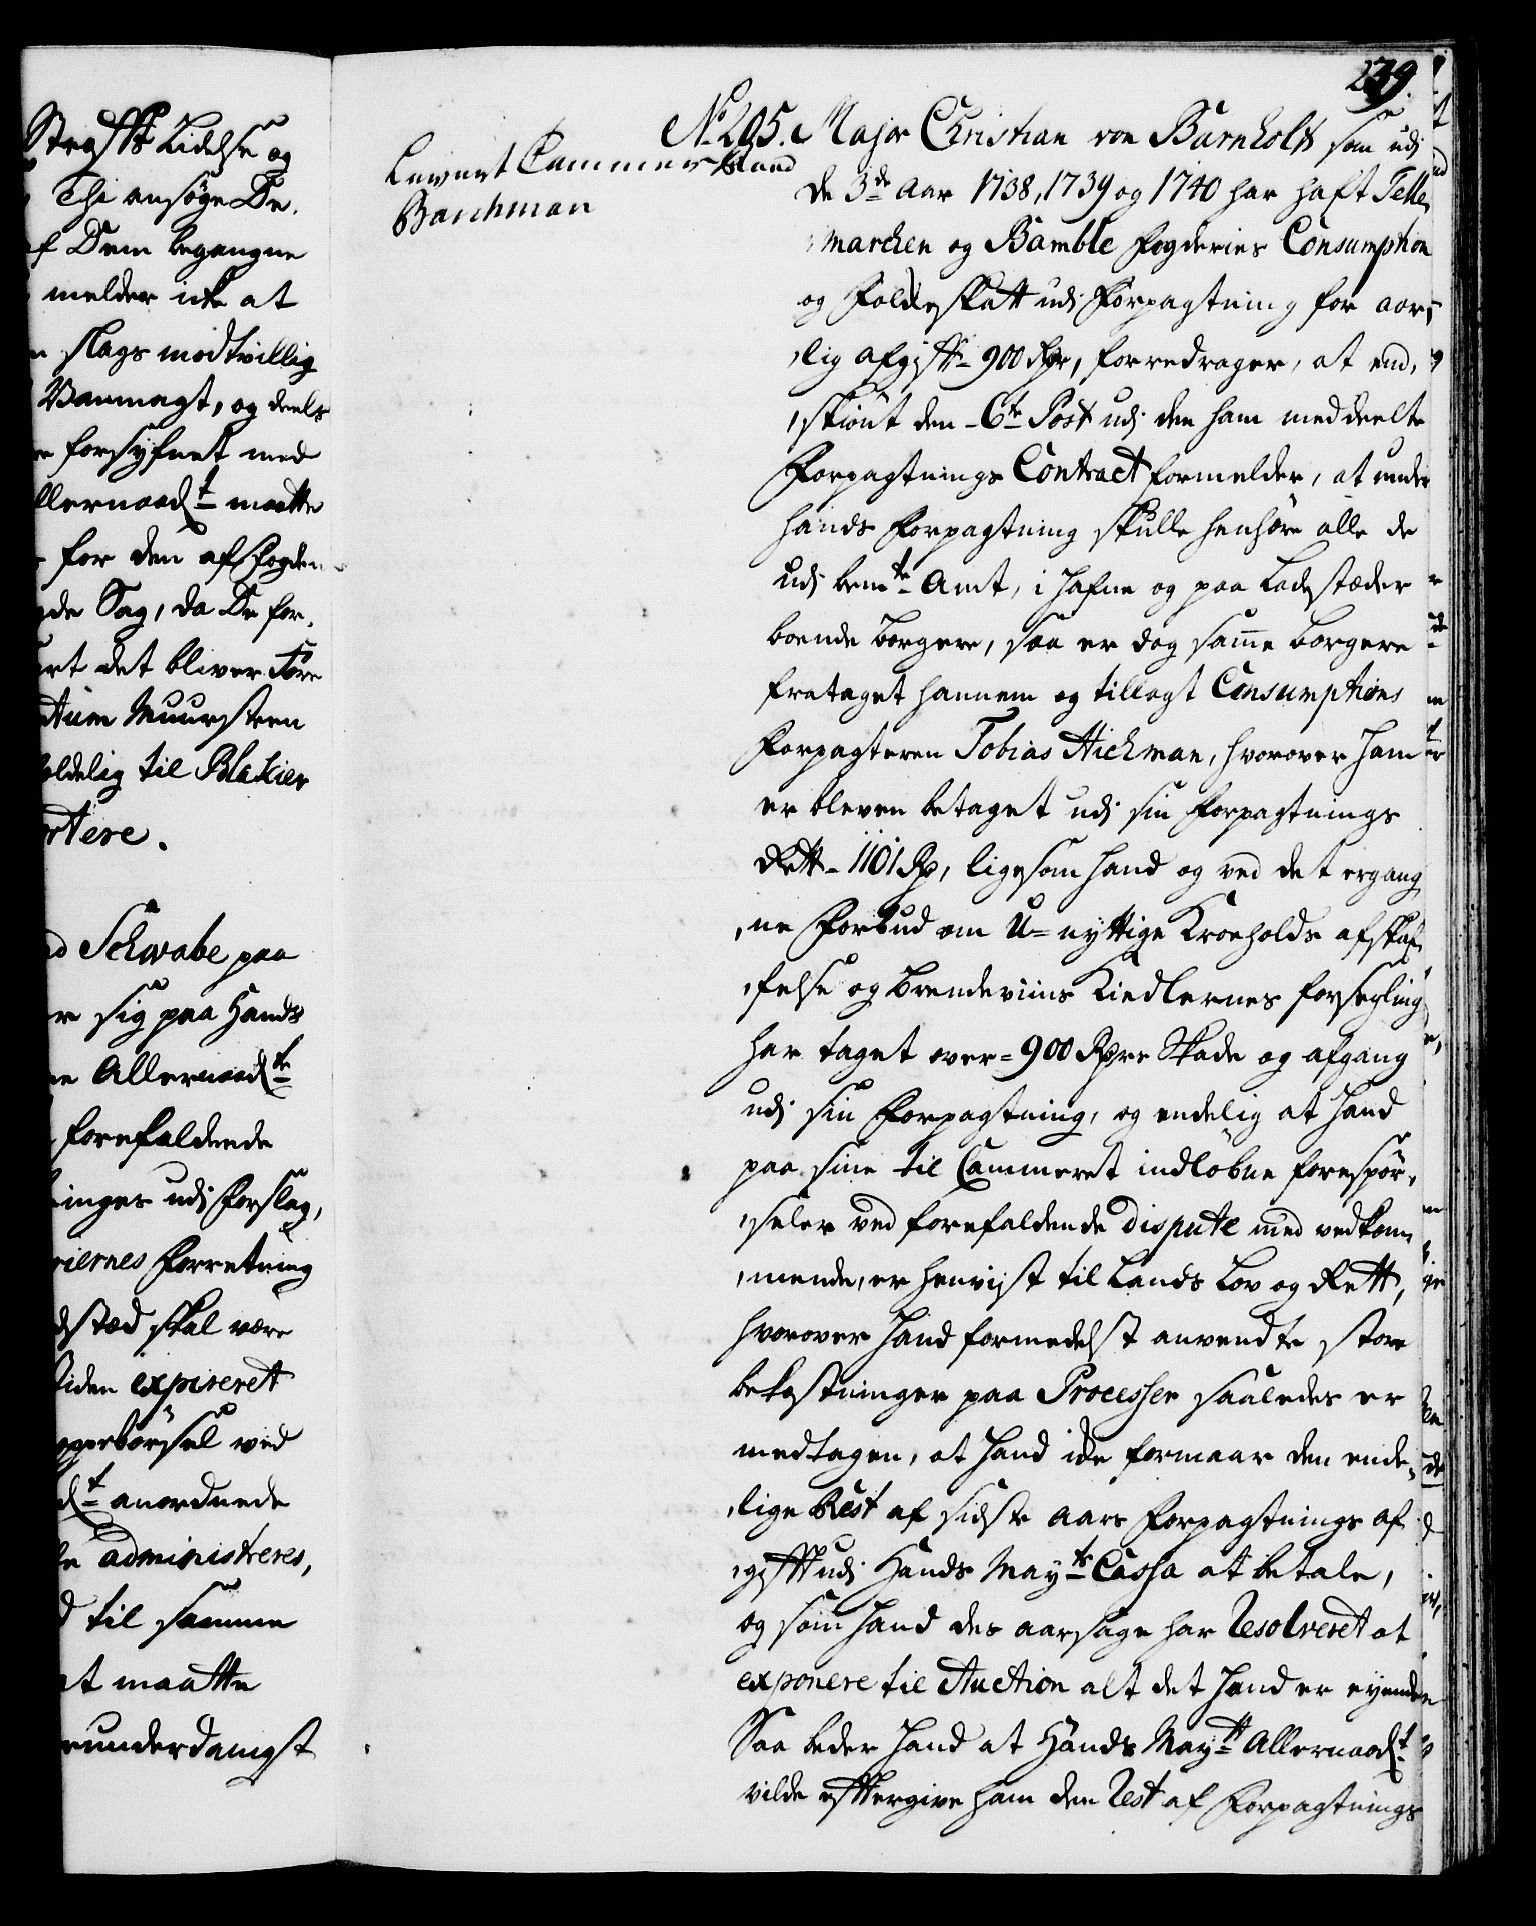 Straffs Lidelse og
Thi ansøge De,
af Dem begangne
melder icke at
slags modtvillig
Vanmagt, og deels
forsyfnet med
llernaadt maatte
for den af Fogden
de Sag, da De for,
det bliver Føre
Muursteen
til Blakier
tere.
Schwabe paa
sig paa Hands
Allernaadte
forefaldende
inges udj Forslag,
Forretning
stæd skal være
tiden expireret
ved
anordnede
administreres,
til samme
at maatte
underdanigst
239.
Leveret Cammerraad
Barchman
No. 205. Major Christian von Barnholt som udj
de 3de Aar 1738, 1739 og 1740 har haft Telle,
,marchen og Bamble Fogderies Consumption
og Folckeskatt udj Forpagtning for aar,
,lig afgift 900 Rdr, forredrager, at end,
,skiønt den 6te Post udj den ham meddeelte
Forpagtnings Contract formelder, at under
hands Forpagtning skulle henhøre alle de
udj bemte Amt, i Hafne og paa Ladestæder
boende borgere, saa er dog samme borgere
frataget hannem og tillagt Consumptions
Forpagteren Tobias Aichman, hvorover ham
er bleven betaget udj sin Forpagtnings
Rett 1101 Rd, ligesom hand og ved det ergang,
,ne Forbud om U-nyttige Kroeholds afskaf,
,felse og Brendeviins Kiedlernes forsegling
har taget over 900 Rdrs Skade og afgang
udj sin Forpagtning, og endelig at hand
paa sine til Cammeret indløbne forespør,
,seler ved forefaldende dispute med vedkom,
,mende, er henvist til Lands Lov og Rett,
hvorover hand formedelst anvendte store
bekostninger paa Processer saaledes er
medtagen, at hand icke formaar den ende,
,lige Rest af sidste Aars Forpagtnings af
,gifft udj Hands Mayts Cassa at betale,
og som hand des aarsage har Resolveret at
exponere til Auction alt det hand er eyende
Saa beder hand at Hands Maytt Allernaadt
vilde efftergive ham den Rest af Forpagtnings